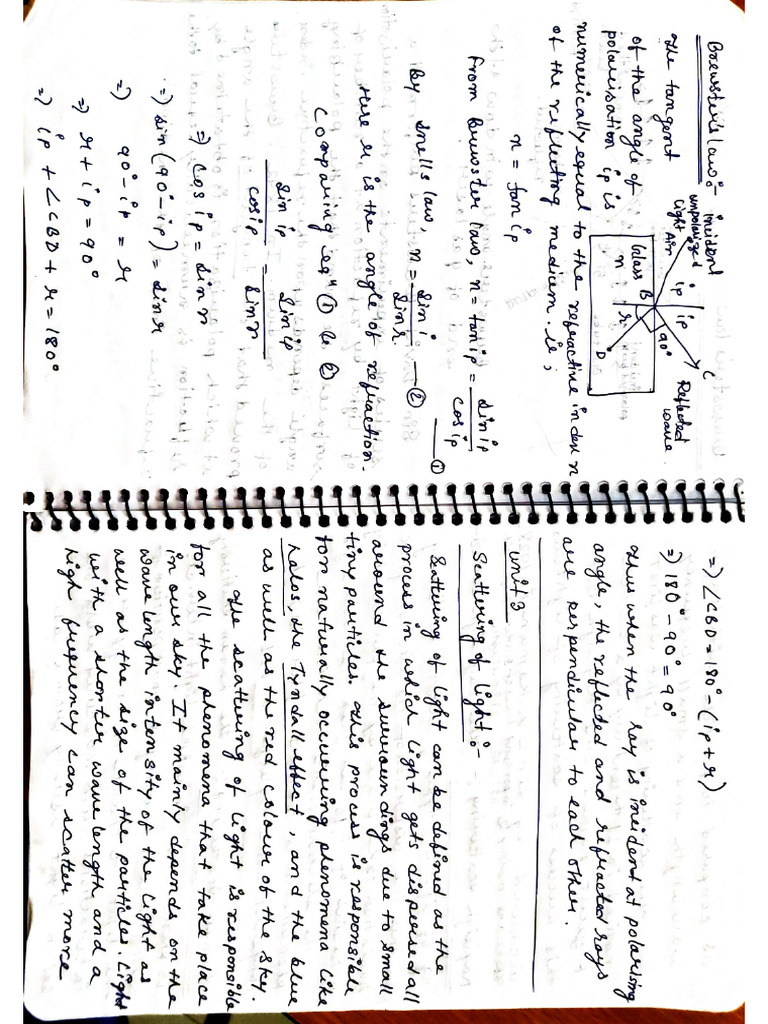 Brewster's law:-
The tangent
of the angle of
polarisation ip is
numerically equal to the refractive index
of the reflecting medium. ie;
incident
unpolarized
light
Air
ip
ip
C
Reflected
wave.
Glass
B
90°
n
r
D
n = tan ip
From Brewster law, n = tan ip = sin ip / cos ip —①
By snells law, n = sin i / sin r —②
Here r is the angle of refraction.
Comparing eqⁿ ① & ②
sin ip / cos ip = sin ip / sin r
⇒ cos ip = sin r
⇒ sin (90° - ip) = sin r
⇒ 90° - ip = r
⇒ r + ip = 90°
⇒ ip + ∠CBD + r = 180°
⇒ ∠CBD = 180° - (ip + r)
⇒ 180° - 90° = 90°
Thus when the ray is incident at polarising
angle, the reflected and refracted rays
are perpendicular to each other.
unit 3
Scattering of light:-
Scattering of light can be defined as the
process in which light gets dispersed all
around the surroundings due to small
tiny particles. This process is responsible
for naturally occurring phenomena like
halos, the Tyndall effect, and the blue
as well as the red colour of the sky.
The scattering of light is responsible
for all the phenomena that take place
in our sky. It mainly depends on the
wavelength intensity of the light as
well as the size of the particles. Light
with a shorter wavelength and a
high frequency can scatter more